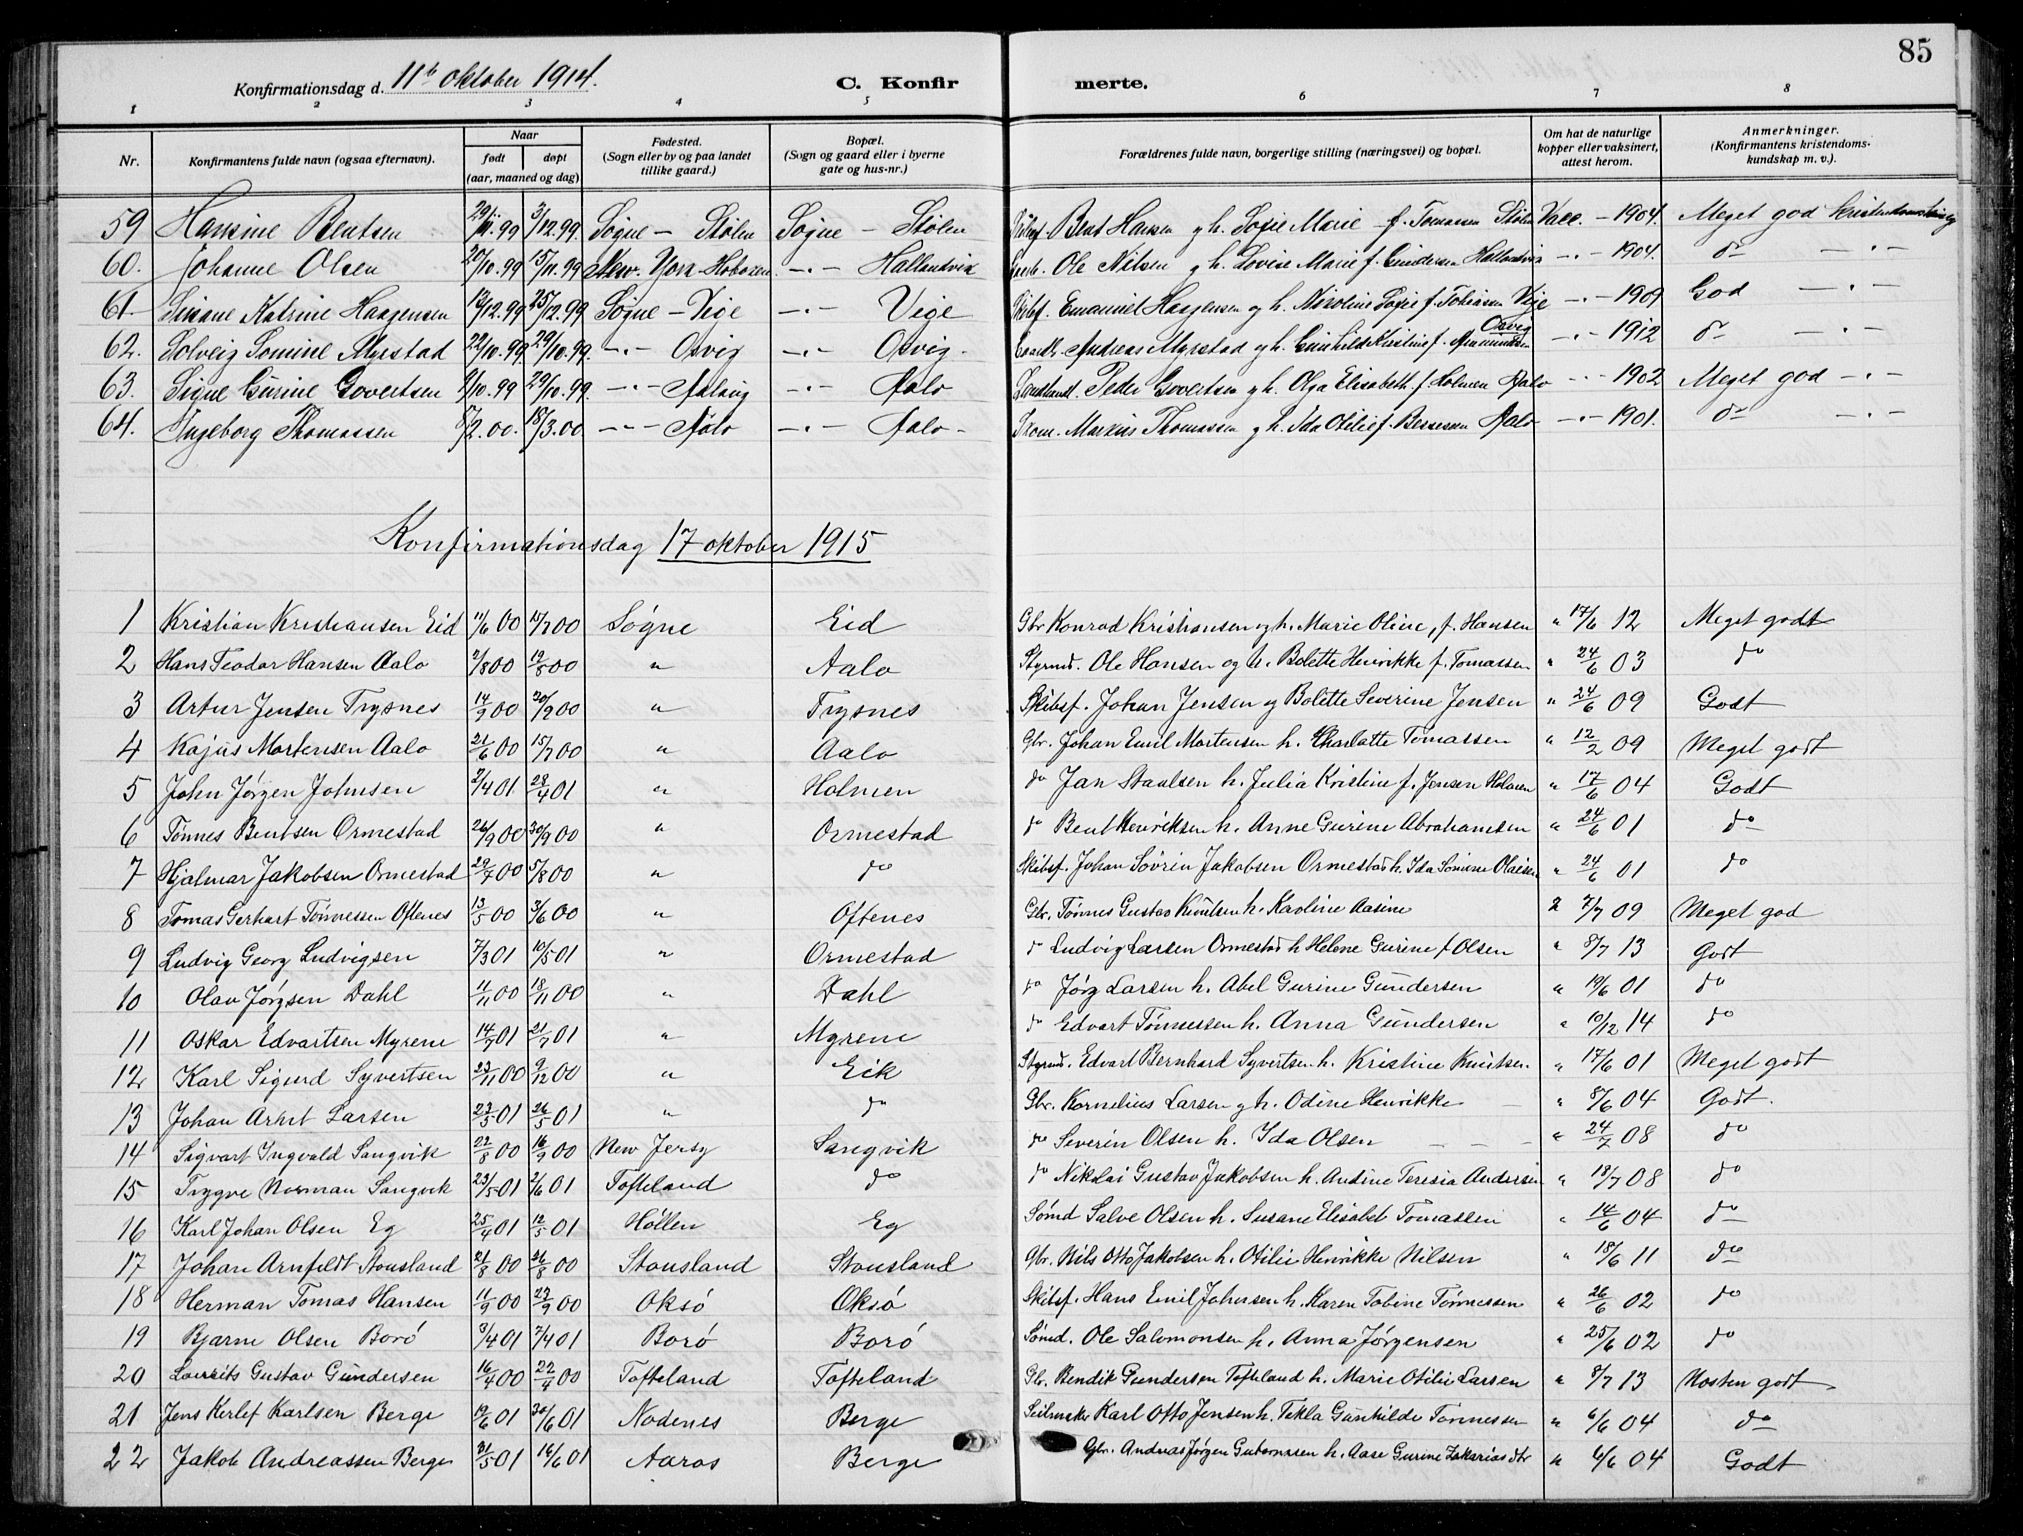 85
Konfirmationsdag d. 11te oktober 1914. C. Konfirmerte.
1 2 3 4 5 6 7 8
Nr. Konfirmantens fulde navn (ogsaa efternavn). Naar født døpt (aar, maaned og dag) Fødested. (Sogn eller by og paa landet tillike gaard.) Bopæl. (Sogn og gaard eller i byerne gate og hus-nr.) Forældrenes fulde navn, borgerlige stilling (næringsvei) og bopæl. Om hat de naturlige kopper eller vaksinert, attest herom. Anmerkninger. (Konfirmantens kristendomskundskap m. v.).
59 Hansine Bentsen 29/11.99 3/12.99. Søgne - Stølen Søgne - Stølen Bent Hansen g h. Sofie Marie f. Tomassen Stølen Vacc. - 1904. Meget god
60. Johanne Olsen 20/10.99 25/11.99 New-York-Hoboken -"- Hallandvik Ole Nilsen g h. Lovise Marie f. Gundersen Hallandvik -"- 1904. do -"-
61. Sinane Katrine Haagensen 13/12.99 25/12.99 Søgne - Vige -"- Vige Skibsf. Emanuel Haagensen og h. Nikoline Sofie f. Tobiassen Vige -"- 1909 God -"-
62. Solveig Somine Myrstad 22/10.99 29/10.99. -"- Osvig -"- Osvig. Andreas Myrstad og h. Gunhilde Kristine f. Osvig -"- 1912 do -"-
63. Signe Gurine Govertsen 9/10.99 29/10.99. -"- -"- Aalo Peder Govertsen g h. Olga Elisabeth f. Holmen Aalo -"- 1902 Meget god -"-
64. Ingeborg Thomassen 8/2.00. 18/3.00 -"- Aalo -"- Aalo. Markus Thomassen g h. Ida Otilie f. Aalo -"- 1901. do -"-
Konfirmationsdag 17 oktober 1915
1 Kristian Kristiansen Eid 11/6 00 15/7 00 Søgne Eid Gbr Konrad Kristiansen og h. Marie Oline, f. Hansen " 17/6 12 Meget godt
2 Hans Teodor Hansen Aalo 2/8 00 19/8 00 " Aalo Styrmd. Ole Hansen og h. Bolette Henrikke f. Tomassen " 24/6 03 do
3 Artur Jensen Trysnes 14/9 00 30/9 00 " Trysnes Skibsf. Johan Jensen og Bolette Severine Jensen " 24/6 09 Godt
4 Kajus Mortensen Aalo 21/6 00 15/7 00 " Aalo Gbr. Johan Emil Mortensen h. Charlotte Tomassen " 12/2 09 Meget godt
5 John Jørgen Johnsen 2/4 01 28/4 01 " Holmen do Jan Staalsen h. Julia Kristine f. Jensen Holmen " 17/6 04 Godt
6 Tønnes Bentsen Ormestad 26/9 00 30/9 00 " Ormestad do Bent Henriksen h. Anne Gurine Abrahamsen " 24/6 01 do
7 Hjalmar Jakobsen Ormestad 29/7 00 5/8 00 " do Skibsf. Johan Sovrin Jakobsen Ormestad h. Ida Somine Olaisen " 24/6 01 do
8 Tomas Gerhart Tønnessen Oftenes 13/5 00 3/6 00 " Oftenes Gbr. Tønnes Gustav Knutsen h. Karoline Aasine 2 7/7 09 Meget god
9 Ludvig Georg Ludvigsen 7/3 01 10/5 01 " Ormestad do Ludvig Larsen Ormestad h Helene Gurine f Olsen " 8/7 13 Godt
10 Olav Jørgsen Dahl 4/11 00 18/11 00 " Dahl do Jørg Larsen h. Abel Gurine Gundersen " 19/6 01 do
11 Oskar Edvartsen Myrene 14/7 01 21/7 01 " Myrene do Edvart Tønnessen h. Anna Gundersen " 10/12 14 do
12 Karl Sigurd Syvertsen 23/11 00 9/12 00 " Eik Styrmd. Edvart Bernhard Syvertsen h. Kristine Knutsen. " 17/6 01 Meget godt
13 Johan Arnt Larsen 23/5 01 26/5 01 " do Gbr. Kornelius Larsen g h. Odine Henrikke " 8/6 04 Godt.
14 Sigvart Ingvald Sangvik 22/8 00 16/9 00 New Jersy Sangvik do Severin Olsen h. Ida Olsen " 24/7 08 do
15 Trygve Norman Sangvik 23/5 01 2/6 01 Tofteland do do Nikolai Gustav Jakobsen h. Andine Teresia Andersen " 18/7 08 do
16 Karl Johan Olsen Eg 25/4 01 12/5 01 Høllen Eg Sømd Salve Olsen h. Susane Elisabet Tomassen " 14/6 04 do
17 Johan Arnfeldt Stousland 21/8 00 26/8 00 Stousland Stousland Gbr. Nils Otto Jakobsen h. Otilie Henrikke Nilsen " 18/6 11 do
18 Herman Tomas Hansen 11/9 00 27/9 00 Oksø Oksø Skibsf. Hans Emil Johnsen h. Karen Tobine Tønnessen " 26/6 02 do
19 Bjarne Olsen Borø 3/4 01 7/4 01 Borø Borø Sømd. Ole Salomonsen h. Anna Jørgensen " 25/6 02 do
20 Laurits Gustav Gundersen 16/4 00 22/4 00 Tofteland Tofteland Gbr. Bendik Gundersen Tofteland h. Marie Otilie Larsen " 8/7 13 Næsten godt.
21 Jens Kerlef Karlsen Berge 19/6 01 30/6 01 Nodenes Berge Seilmaker Karl Otto Jensen h. Tekla Gunhilde Tønnessen " 6/6 04 do
22 Jakob Andreassen Berge 31/5 01 16/6 01 Aaros Berge Gbr. Andreas Jørgen h. Aase Gurine Zakariasdtr " 6/6 04 Godt